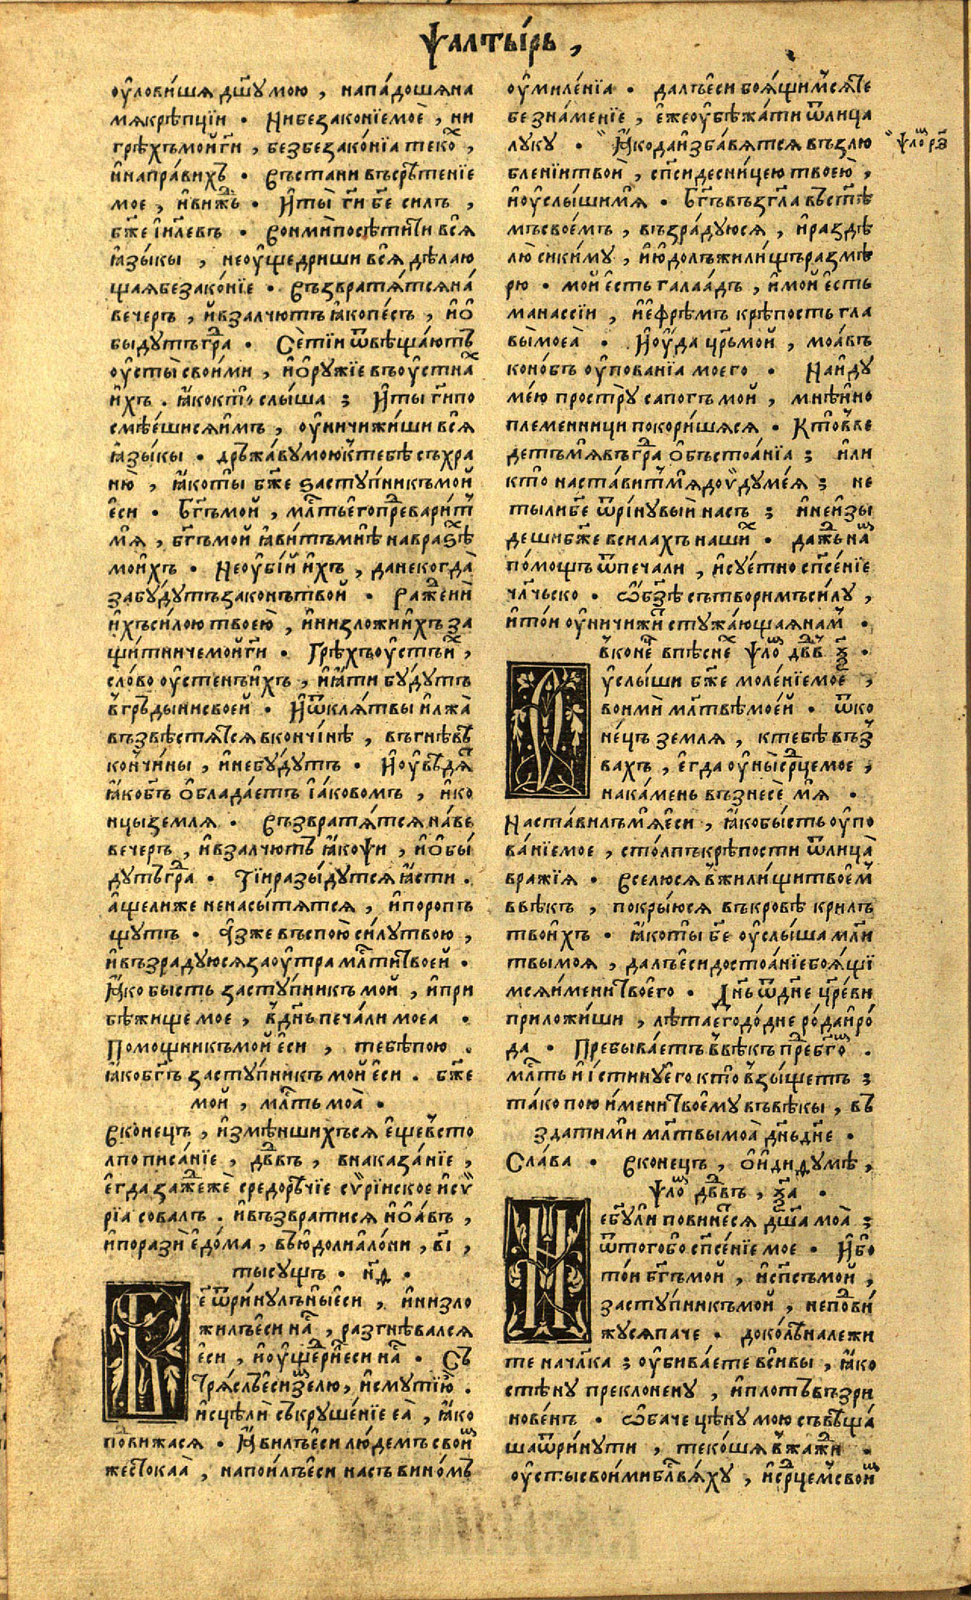 Ѱалты́рь ,
оу҆лови́шꙗ дш҃ꙋ мою , напа́дошꙗ на
мѧ крѣпцїи · Ни беꙁаконїе мое , ни
грѣхъ мой гн҃и , беꙁ беꙁако́нїа теко́х ,
и҆ напра́вихъ · Въстани въ срѣ́тенїе
мое , и҆ ви́жь · И҆ ты̀ гн҃и бж҃е силъ ,
бж҃е і҆и҃левъ · Вонми посѣти́ти всѧ̀
ꙗ҆ꙁы́кы , не оу҆щедриши всѧ̀ дѣлаю
щаѧ беꙁако́нїе · Въꙁвратѧ́тсѧ на́
вечеръ , и҆ вꙁалчютъ ꙗ҆ко пе́съ , и҆ ѻ҆
бы́дутъ гра́д · Се́ ті́и ѿвѣща́ютъ
оу҆сты̀ свои́ми , и҆ ѻ҆рꙋжїе въ оу҆стна́х
и҆хъ . ꙗ҆ко кто̀ слы́ша ; И҆ ты гн҃и по
смѣе́шисѧ и҆мъ , оу҆ничижи́ши всѧ̀
ꙗ҆ꙁы́кы · дръжа́вꙋ мою к тебѣ съхра
ню̀ , ꙗ҆ко ты̀ бж҃е ꙁастꙋ́пникъ мой
є҆си · Бг҃ъ мой , млт҃ь е҆го предвари́т
мѧ̀ , бг҃ъ мой ꙗ҆ви́тъ мнѣ̀ на враꙁѣ́х
мои́хъ · Не оу҆бі́й и҆́хъ , да не когда̀
ꙁабꙋ́дꙋтъ ꙁаконъ твой · Ражденѝ
и҆хъ си́лою твоею̀ , и҆ ниꙁложѝ и҆́хъ ꙁа
щи́тниче мой гн҃и · Грѣ́хъ оу҆стъ и҆́х ,
сло́во оу҆стенъ и҆́хъ , и҆ ꙗ҆ти бꙋ́дꙋтъ
в гръды́ни своей · И҆ ѿ клѧ́твы и҆ лжа̀
въꙁвѣстѧ́тсѧ в кончи́нѣ , въ гнѣ́вѣ
кончи́ны , и҆ не бꙋ́дꙋтъ · И҆ оу҆вѣ́дѧт
ꙗ҆ко бг҃ъ ѻ҆блада́етъ і҆а́ковомъ , и҆ ко
нцы ꙁемлѧ · Въꙁвратѧ́тсѧ на́ ве
вечеръ , и҆ вꙁалчютъ ꙗ҆ко пѝ , и҆ ѻ҆бы́
дꙋтъ гра́д · Ті́и раꙁы́дꙋтсѧ ꙗ҆сти .
а҆ще ли же не насы́тѧтсѧ , и҆ поропъ
щꙋтъ · А҆ꙁ же въспою̀ си́лꙋ твою ,
и҆ въꙁрадꙋюсѧ ꙁа оу҆тра млт҃и твоей ·
ꙗ҆ко бысть ꙁастꙋ́пникъ мой , и҆ при
бѣ́жище мое , в дн҃ь печа́ли моеа ·
Помощникъ мой е҆си , тебѣ̀ пою .
ꙗ҆ко бг҃ъ ꙁастꙋ́пникъ мой е҆си . бж҃е
мой , млт҃ь моа̀ ·
В конецъ , и҆ꙁмѣ́ншихъсѧ е҆ще в сто
лпописа́нїе , дв҃дꙋ , в накаꙁа́нїе ,
е҆гда ꙁажежѐ средорѣ́чїе сѷрі́иское и҆ сѷ
рі́а совалъ . и҆ въꙁвратисѧ и҆ѻ҆а́въ ,
и҆ поразѝ е҆до́ма , въ ю҆доли а҆ло́ни , ві҃ ,
тысꙋщъ · нд҃ ·
Бж҃е ѿри́нꙋлъ ны̀ е҆си , и҆ ниꙁло
жилъ е҆си на́с , раꙁгнѣвалсѧ
е҆си , и҆ оу҆ще́дри е҆си на́с · Съ
трѧ́слъ е҆си ꙁе́млю , и҆ смꙋтѝ ю̀ .
и҆сцѣлѝ съкрꙋше́нїе еа̀ , ꙗ҆ко
подви́жасѧ · ꙗ҆ви́лъ е҆си лю́демъ свои́м
жестокаа̀ , напои́лъ е҆си насъ вино́мъ
оу҆миле́нїа · далъ е҆си боѧ́щимсѧ те́бе
ꙁна́менїе , е҆же оу҆бѣжа́ти ѿ лица
лꙋкꙋ · ꙗ҆ко да иꙁба́вѧтсѧ въꙁлю Ѱло́м рꙁ҃
бленїи твои̂ , сп҃си десни́цею твоею̀ ,
и҆ оу҆слы́ши мѧ · Бг҃ъ въꙁгл҃а въ ст҃ѣ́
мъ своемъ , въꙁра́дꙋюсѧ , и҆ раꙁдѣ
лю̀ сикимꙋ , и҆ ю҆до́лъ жили́щъ раꙁмѣ́
рю · мой е҆сть гала́адъ , и҆ мой е҆сть
манассі́и , и҆ е҆фре́мъ крѣ́пость гла
вы̀ моеа̀ · И҆ю́да цр҃ь мой , моа́въ
коно́бъ оу҆пованїа моего · На и҆дꙋ
ме́ю простр̀ꙋ сапогъ мой , мнѣ̀ и҆но
племенници покори́шасѧ · Кто̀ в ве
детъ мѧ̀ въ гра́д ѻ҆бъстоа́нїа ; и҆ли
кто̀ наста́витъ мѧ̀ до и҆дꙋме́ѧ ; не
ты ли бж҃е ѿри́нꙋвый насъ ; и҆ не иꙁы
деши бж҃е в силахъ наши́х · да́ждь на́м
по́мощъ ѿ печали , и҆ сꙋе́тно сп҃се́нїе
чл҃чьско · ѡ҆ бꙁѣ̀ сътвори́мъ си́лꙋ ,
и҆ то́и оу҆ничижи́т стꙋжа́ющаѧ нам ·
в коне́ц в пѣсне́х ѱло́м дв҃дв ѯ҃ ·
Оу҆слы́ши бж҃е моле́нїе мое ,
вонмѝ млт҃вѣ моей · ѿ ко
не́цъ ꙁемлѧ , к тебѣ̀ въꙁ
вахъ , е҆гда оу҆ны̀ ср҃це мое ,
на камень въꙁнесѐ мѧ ·
Наста́вилъ мѧ е҆си , ꙗ҆ко бы́сть оу҆по
ва́нїе мое , сто́лпъ крѣпости ѿ лица̀
вра́жїѧ · Вселю́сѧ в жили́щи твое́м
в вѣ́къ , покры́юсѧ въ кровѣ крилъ
твои́хъ · ꙗ҆ко ты̀ бж҃е оу҆слы́ша мл҃и
твы моѧ , далъ е҆си достоа́нїе боѧ́щї
мсѧ и҆мени твоего · Дн҃ь ѿ дне цр҃е́ви
приложи́ши , лѣта е҆го до дне ро́да и҆ ро́
да · Пребыва́етъ в вѣ́къ пред бг҃ом .
млт҃ь и҆ и҆́стинꙋ его кто̀ вꙁы́щетъ ;
та́ко пою и҆мени твоемꙋ въ вѣ́кы , въ
ꙁдати мѝ млт҃вы моа̀ дн҃ь ѿ дне ·
Сла́ва · В конецъ , ѻ҆ и҆дидꙋ́мѣ ,
ѱло́м дв҃дв , ѯа҃ ·
Не бг҃ꙋ ли повине́тсѧ дш҃а моа̀ ;
ѿ того́ бо сп҃се́нїе мое · И҆́бо
то́и бг҃ъ мой , и҆ сп҃съ мой ,
ꙁастꙋпникъ мой , не подви́
жꙋсѧ паче · доко́лѣ належи
те на чл҃ка ; оу҆бива́ете вси̂ вы , ꙗ҆ко
стѣ́нꙋ преклоненꙋ , и҆ плотъ въꙁри
новенъ · ѡ҆баче цѣнꙋ мою съвѣща́
ша ѿри́нꙋти , теко́шѧ в жа́жди ·
оу҆сты̀ своими блг҃влѧ́хꙋ , и҆ ср҃цемъ свои́м